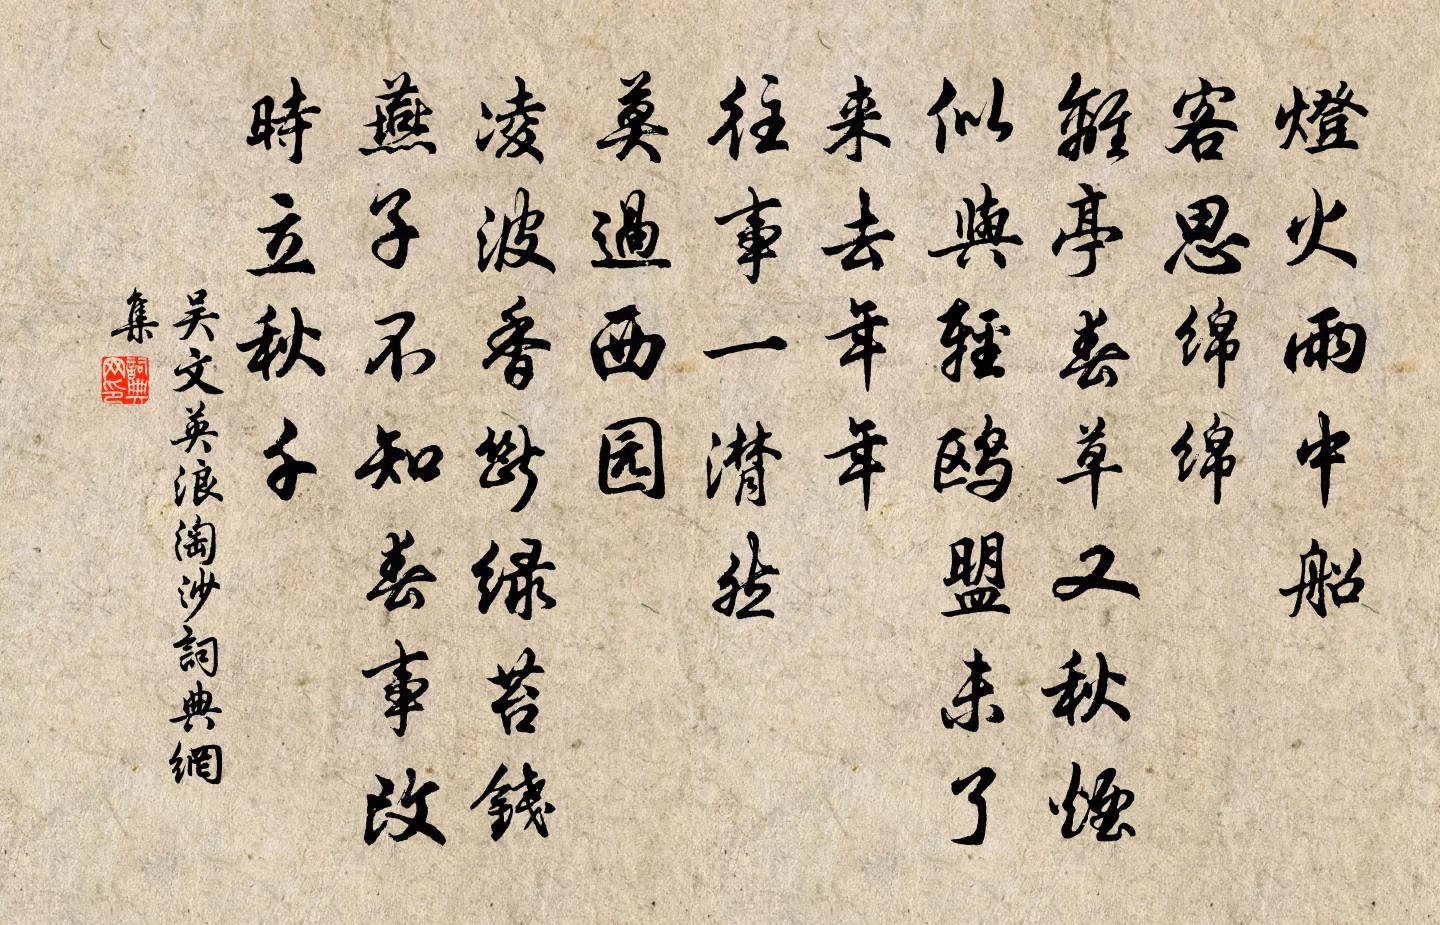 燈火雨中船
客思綿綿
離亭春草又秋煙
似與輕鷗盟未了
来去年年
往事一潸然
莫過西园
凌波香斷綠苔錢
燕子不知春事改
時立秋千
吴文英浪淘沙詞典網
集
詞典网印